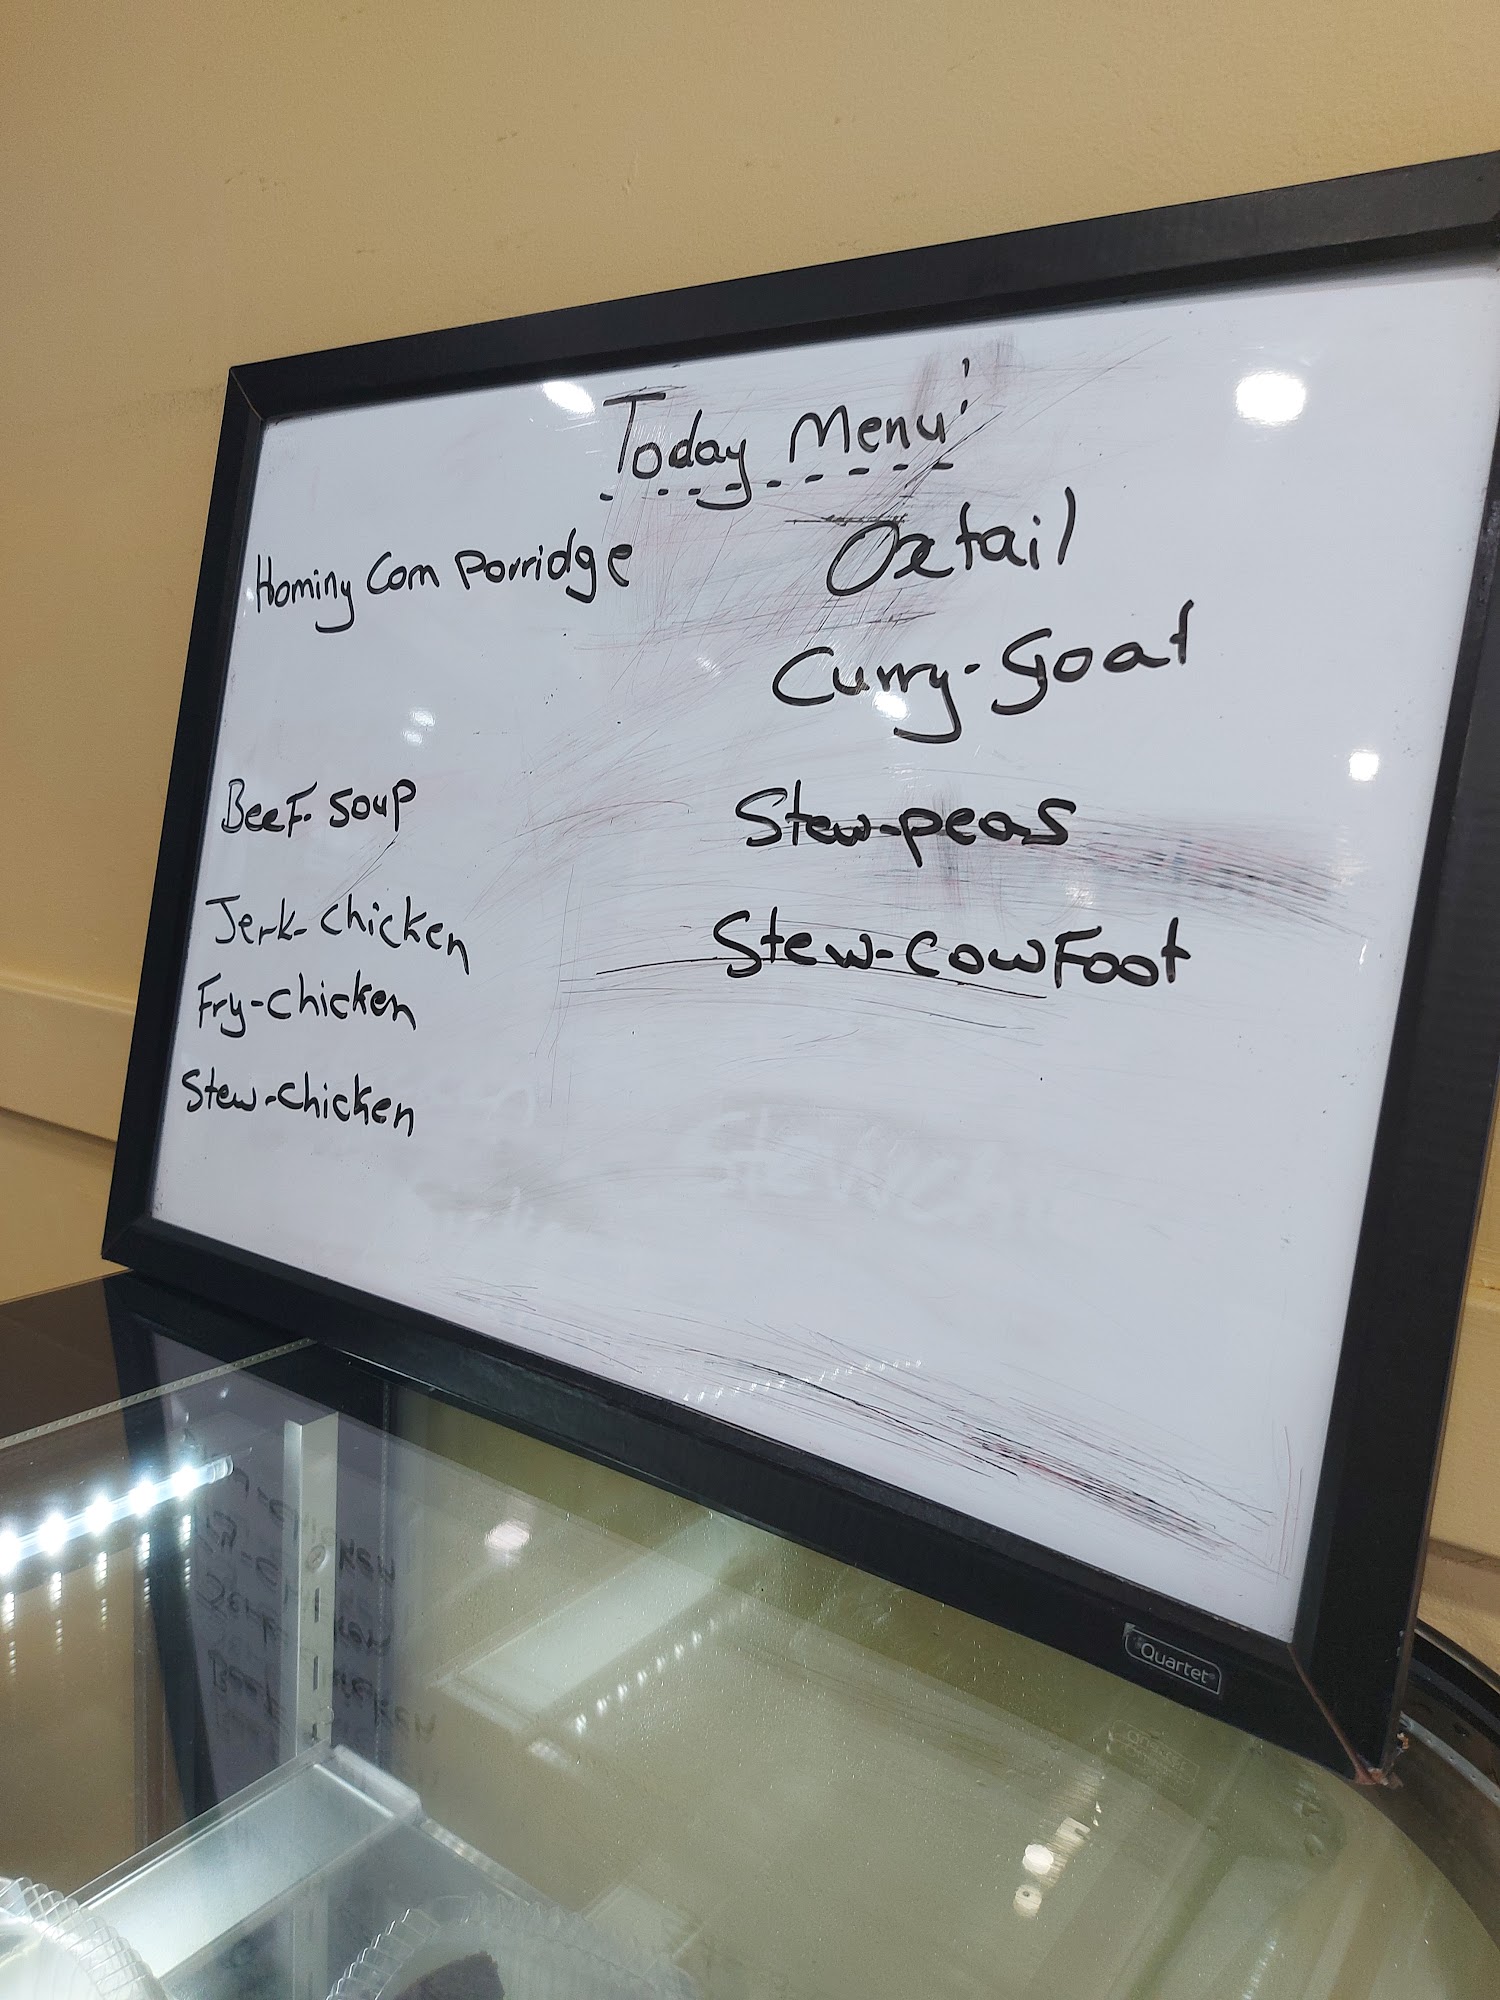 Today Menu
Hominy Corn Porridge
Beef. Soup
Jerk-Chicken
Fry-Chicken
Stew-Chicken
Oxtail
Curry-Goat
Stew-peas
Stew-CowFoot
Quartet